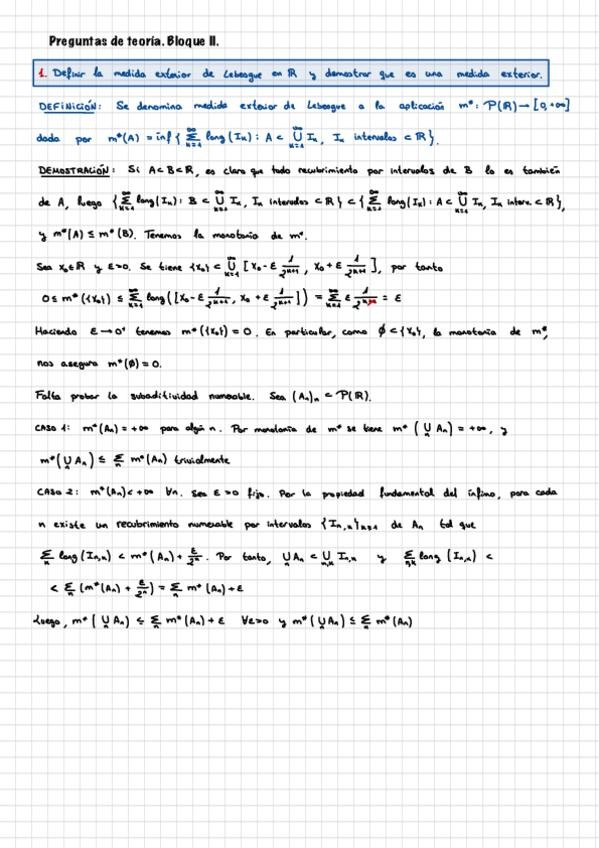 Preguntas de teoría. Bloque II.
1. Definir la medida exterior de Lebesgue en ℝ y demostrar que es una medida exterior.
DEFINICIÓN: Se denomina medida exterior de Lebesgue a la aplicación m*: P(ℝ) → [0,+∞]
dada por m*(A) = inf { ∑_{k=1}^∞ long(I_k) : A ⊂ ⋃_{k=1}^∞ I_k, I_k intervalos ⊂ ℝ }.
DEMOSTRACIÓN: Si A ⊂ B ⊂ ℝ, es claro que todo recubrimiento por intervalos de B lo es también
de A, luego { ∑_{k=1}^∞ long(I_k) : B ⊂ ⋃_{k=1}^∞ I_k, I_k intervalos ⊂ ℝ } ⊂ { ∑_{k=1}^∞ long(I_k) : A ⊂ ⋃_{k=1}^∞ I_k, I_k interv. ⊂ ℝ },
y m*(A) ≤ m*(B). Tenemos la monotonía de m*.
Sea x₀ ∈ ℝ y ε>0. Se tiene {x₀} ⊂ ⋃_{k=1}^∞ [x₀ - ε 1/2^{k+1}, x₀ + ε 1/2^{k+1}], por tanto
0 ≤ m*({x₀}) ≤ ∑_{k=1}^∞ long([x₀ - ε 1/2^{k+1}, x₀ + ε 1/2^{k+1}]) = ∑_{k=1}^∞ ε 1/2^k = ε
Haciendo ε → 0⁺ tenemos m*({x₀}) = 0. En particular, como ∅ ⊂ {x₀}, la monotonía de m*,
nos asegura m*(∅) = 0.
Falta probar la subaditividad numerable. Sea (A_n)_n ⊂ P(ℝ).
CASO 1: m*(A_n) = +∞ para algún n. Por monotonía de m* se tiene m*(⋃_n A_n) = +∞, y
m*(⋃_n A_n) ≤ ∑_n m*(A_n) trivialmente
CASO 2: m*(A_n) < +∞ ∀n. Sea ε >0 fijo. Por la propiedad fundamental del ínfimo, para cada
n existe un recubrimiento numerable por intervalos {I_{n,k}}_{k≥1} de A_n tal que
∑_k long(I_{n,k}) < m*(A_n) + ε/2^n. Por tanto, ⋃_n A_n ⊂ ⋃_{n,k} I_{n,k} y ∑_{n,k} long(I_{n,k}) <
< ∑_n (m*(A_n) + ε/2^n) = ∑_n m*(A_n) + ε
Luego, m*(⋃_n A_n) ≤ ∑_n m*(A_n) + ε ∀ε>0 y m*(⋃_n A_n) ≤ ∑_n m*(A_n)